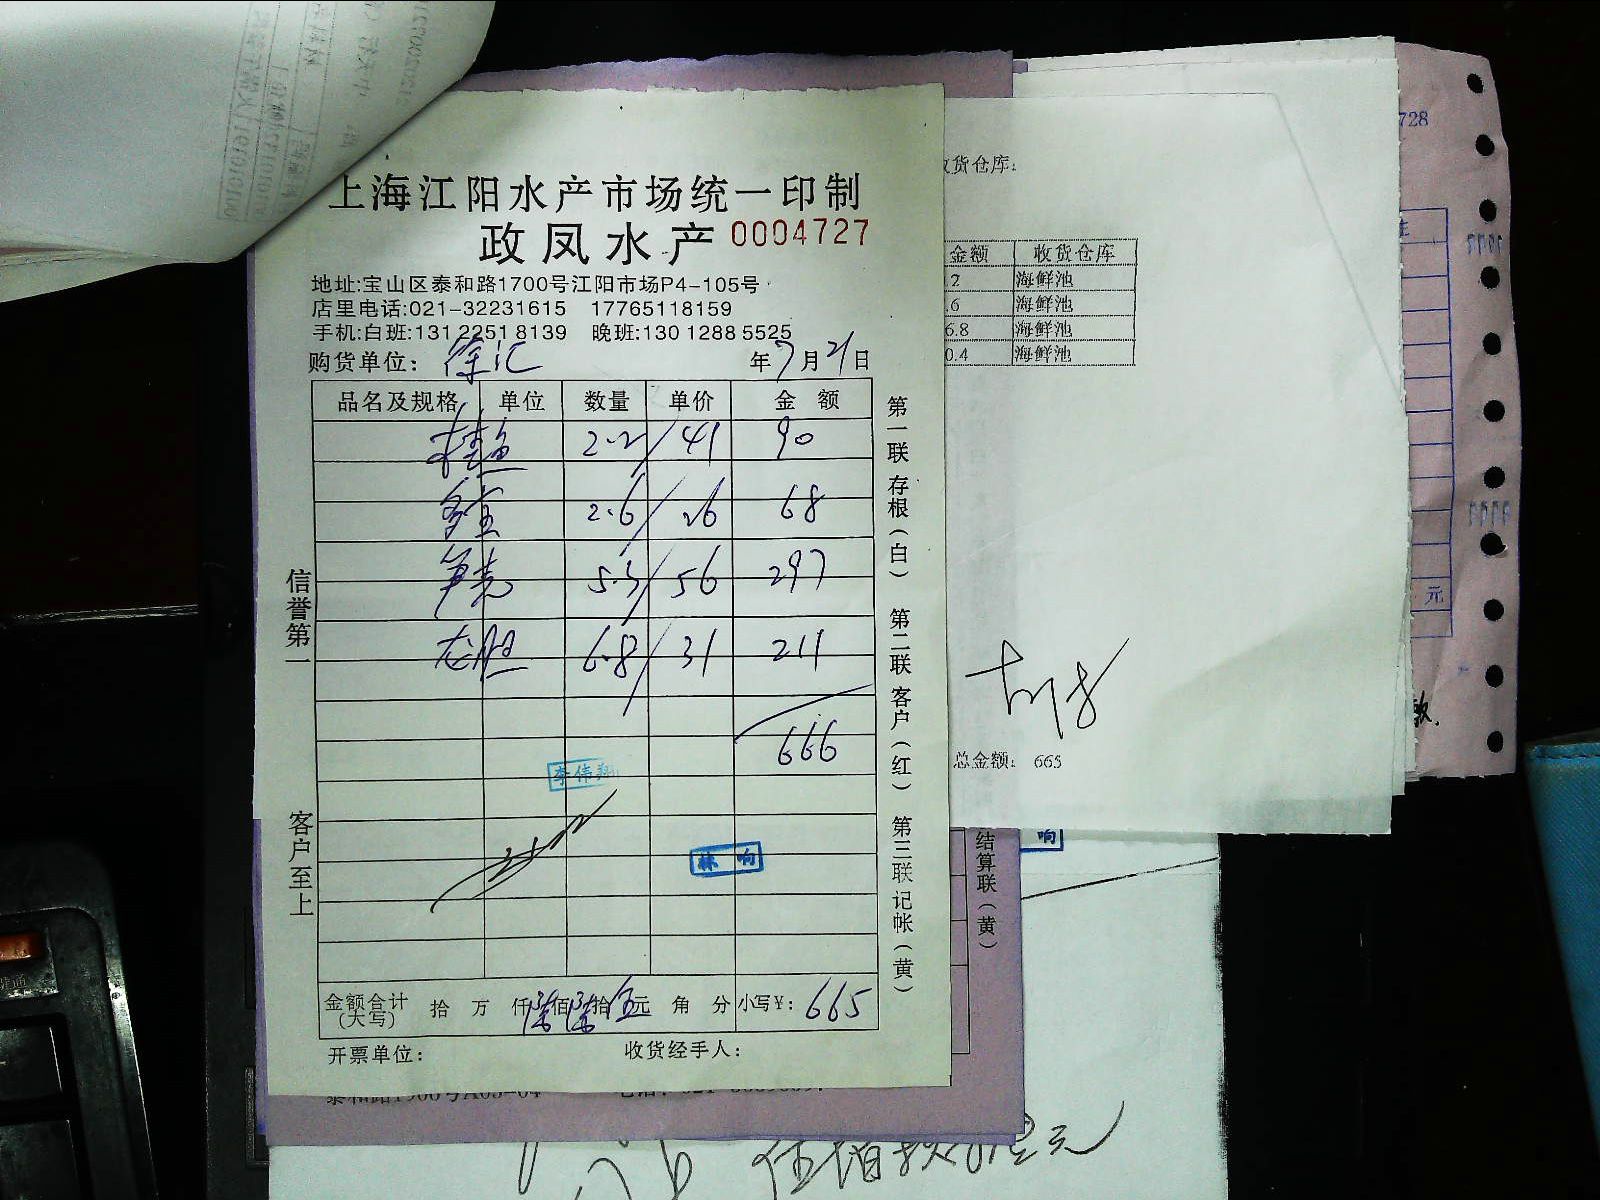 上海江阳水产市场统一印制
政凤水产 0004727
地址:宝山区泰和路1700号江阳市场P4-105号
店里电话:021-32231615 17765118159
手机:白班:131 2251 8139 晚班:130 1288 5525
购货单位: 徐汇 年7月21日
品名及规格 单位 数量 单价 金 额
桂鱼 2.2/41 90
多宝 2.6/26 68
笋壳 5.3/56 297
龙胆 6.8/31 211
666
李伟翔
林 响
金额合计(大写) 拾 万 仟陆佰陆拾伍元 角 分 小写¥: 665
开票单位: 收货经手人:
信誉第一
客户至上
第一联 存根(白) 第二联 客户(红) 第三联 记帐(黄)
货仓库:
金额 收货仓库
.2 海鲜池
.6 海鲜池
6.8 海鲜池
0.4 海鲜池
总金额: 665
728
元
款.
响
结算联(黄)